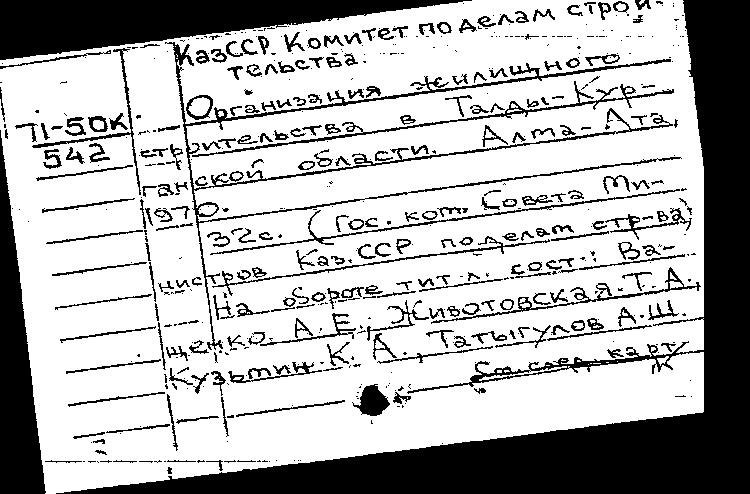 КазССР. Комитет по делам строи-
тельства.
71-50к.
542
Организация жилищного
строительства в Талды-Кур-
ганской области. Алма-Ата,
1970.
32с. (Гос. ком. Совета Ми-
нистров Каз.ССР по делам стр-ва)
На обороте тит. л. сост.: Ва-
щенко. А. Е., Животовская. Т. А.,
Кузьмин. К. А., Татыгулов А. Ш.
См. след. карт